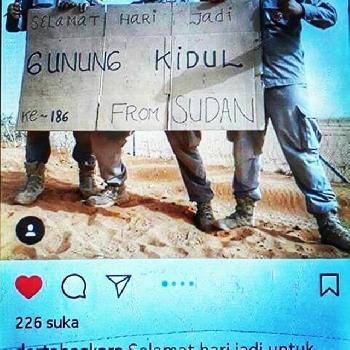 SELAMAT HARI JADI
GUNUNG KIDUL
KE~186 FROM SUDAN
226 suka
Selamat hari jadi untuk